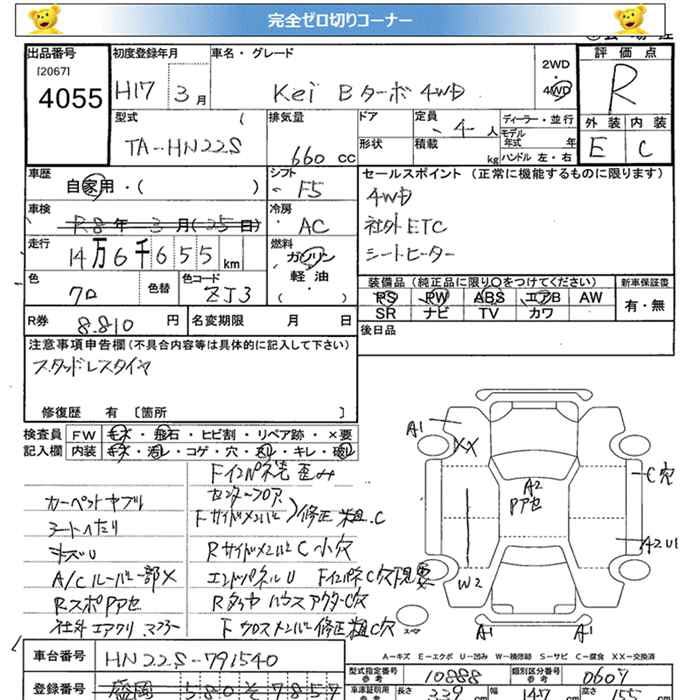 完全ゼロ切りコーナー
出品番号
[2067]
4055
初度登録年月
H17 3月
車名・グレード
Kei Bターボ 4WD
2WD
4WD
評価点
R
外装 内装
E C
型式 (
TA-HN22S
排気量
660 cc
ドア
形状
定員 4 人
積載 kg
ディーラー・並行
モデル年式 年
ハンドル 左・右
車歴
自家用・( )
シフト
F5
車検
R8年3月(25日)
冷房
AC
走行
14万6千655km
燃料
ガソリン
軽油
( )
色
クロ
色替
色コード
ZJ3
R券 8.810 円
名変期限 月 日
セールスポイント (正常に機能するものに限ります)
4WD
社外ETC
シートヒーター
装備品 (純正品に限り〇をつけてください)
PS PW ABS エアB AW
SR ナビ TV カワ
新車保証書
有・無
後日品
注意事項申告欄 (不具合内容等は具体的に記入して下さい)
スタッドレスタイヤ
修復歴 有 〔箇所 〕
検査員
記入欄
FW キズ・飛石・ヒビ割・リペア跡・×要
内装 キズ・汚レ・コゲ・穴・スレ・キレ・破レ
カーペットヤブレ
シートヘたり
キズU
A/Cルーバー一部×
RスポPアセ
社外エアクリ マフラー
Fインパネ先歪み
センターフロア
Fサイドメンバー
修正 粗.C
RサイドメンバーC 小穴
エンドパネルU
A1
XX
A2
Pアセ
W2
C穴
A2U1
A1
A1
スペア
A-キズ E-エクボ U-凹み W-補修跡 S-サビ C-腐食 XX-交換済
車台番号
HN22S-791540
登録番号
盛岡 580 そ 7857
型式指定番号
参考
10888
類別区分番号
参考
0607
車体証明用
参考
長さ 339
幅 147
高さ 155